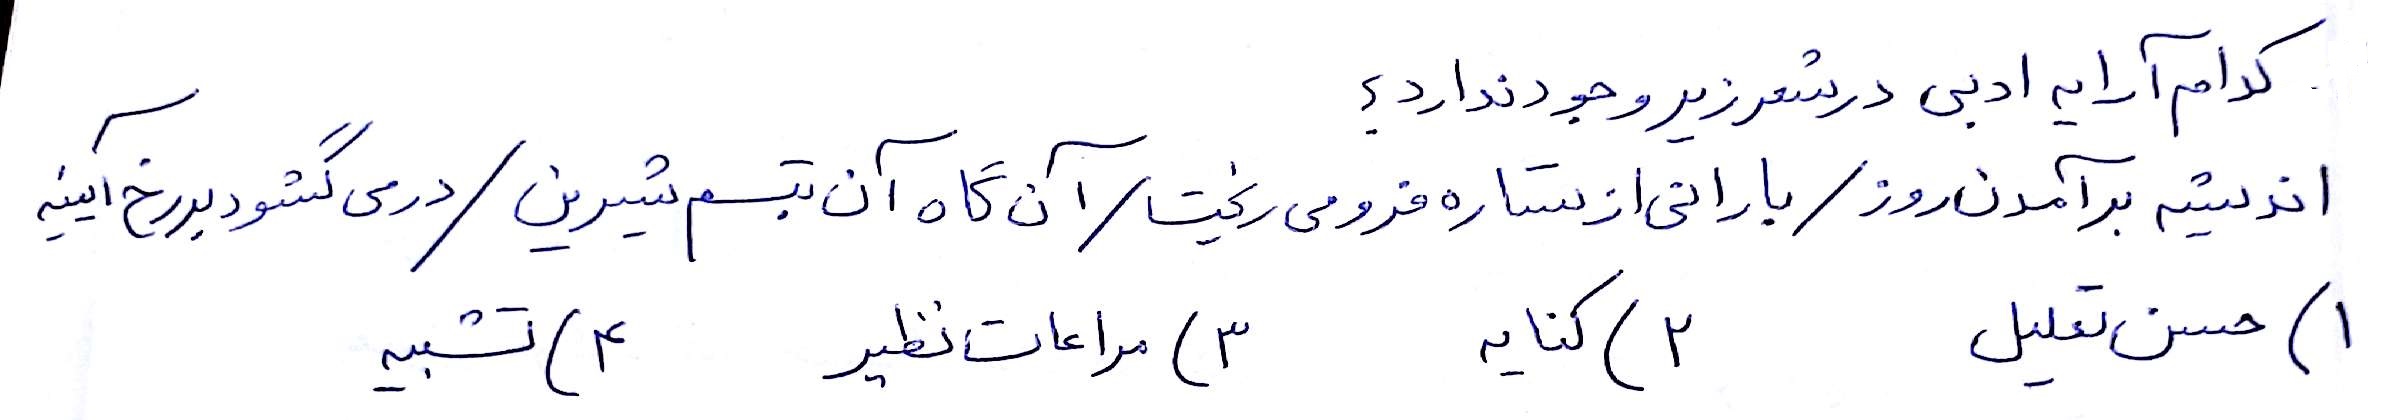 کدام آرایه ادبی در شعر زیر وجود ندارد؟
اندیشه برآمدن روز / بارانی از ستاره فرو می ریخت / آن گاه آن تبسم شیرین / در می گشود بر رخ آینه
۱) حسن تعلیل ۲) کنایه ۳) مراعات نظیر ۴) تشبیه